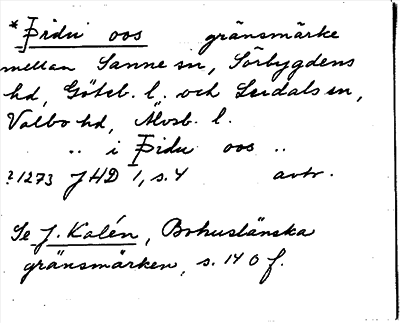 * Þidu oos gränsmärke
mellan Sanne sn, Sörbygdens
hd, Göteb. l. och Lerdals sn,
Valbo hd, Älvsb. l.
.. i Þidu oos ..
?1273 JHD 1, s. 4 avtr.
Se J. Kalén, Bohuslänska
gränsmärken, s. 140 f.